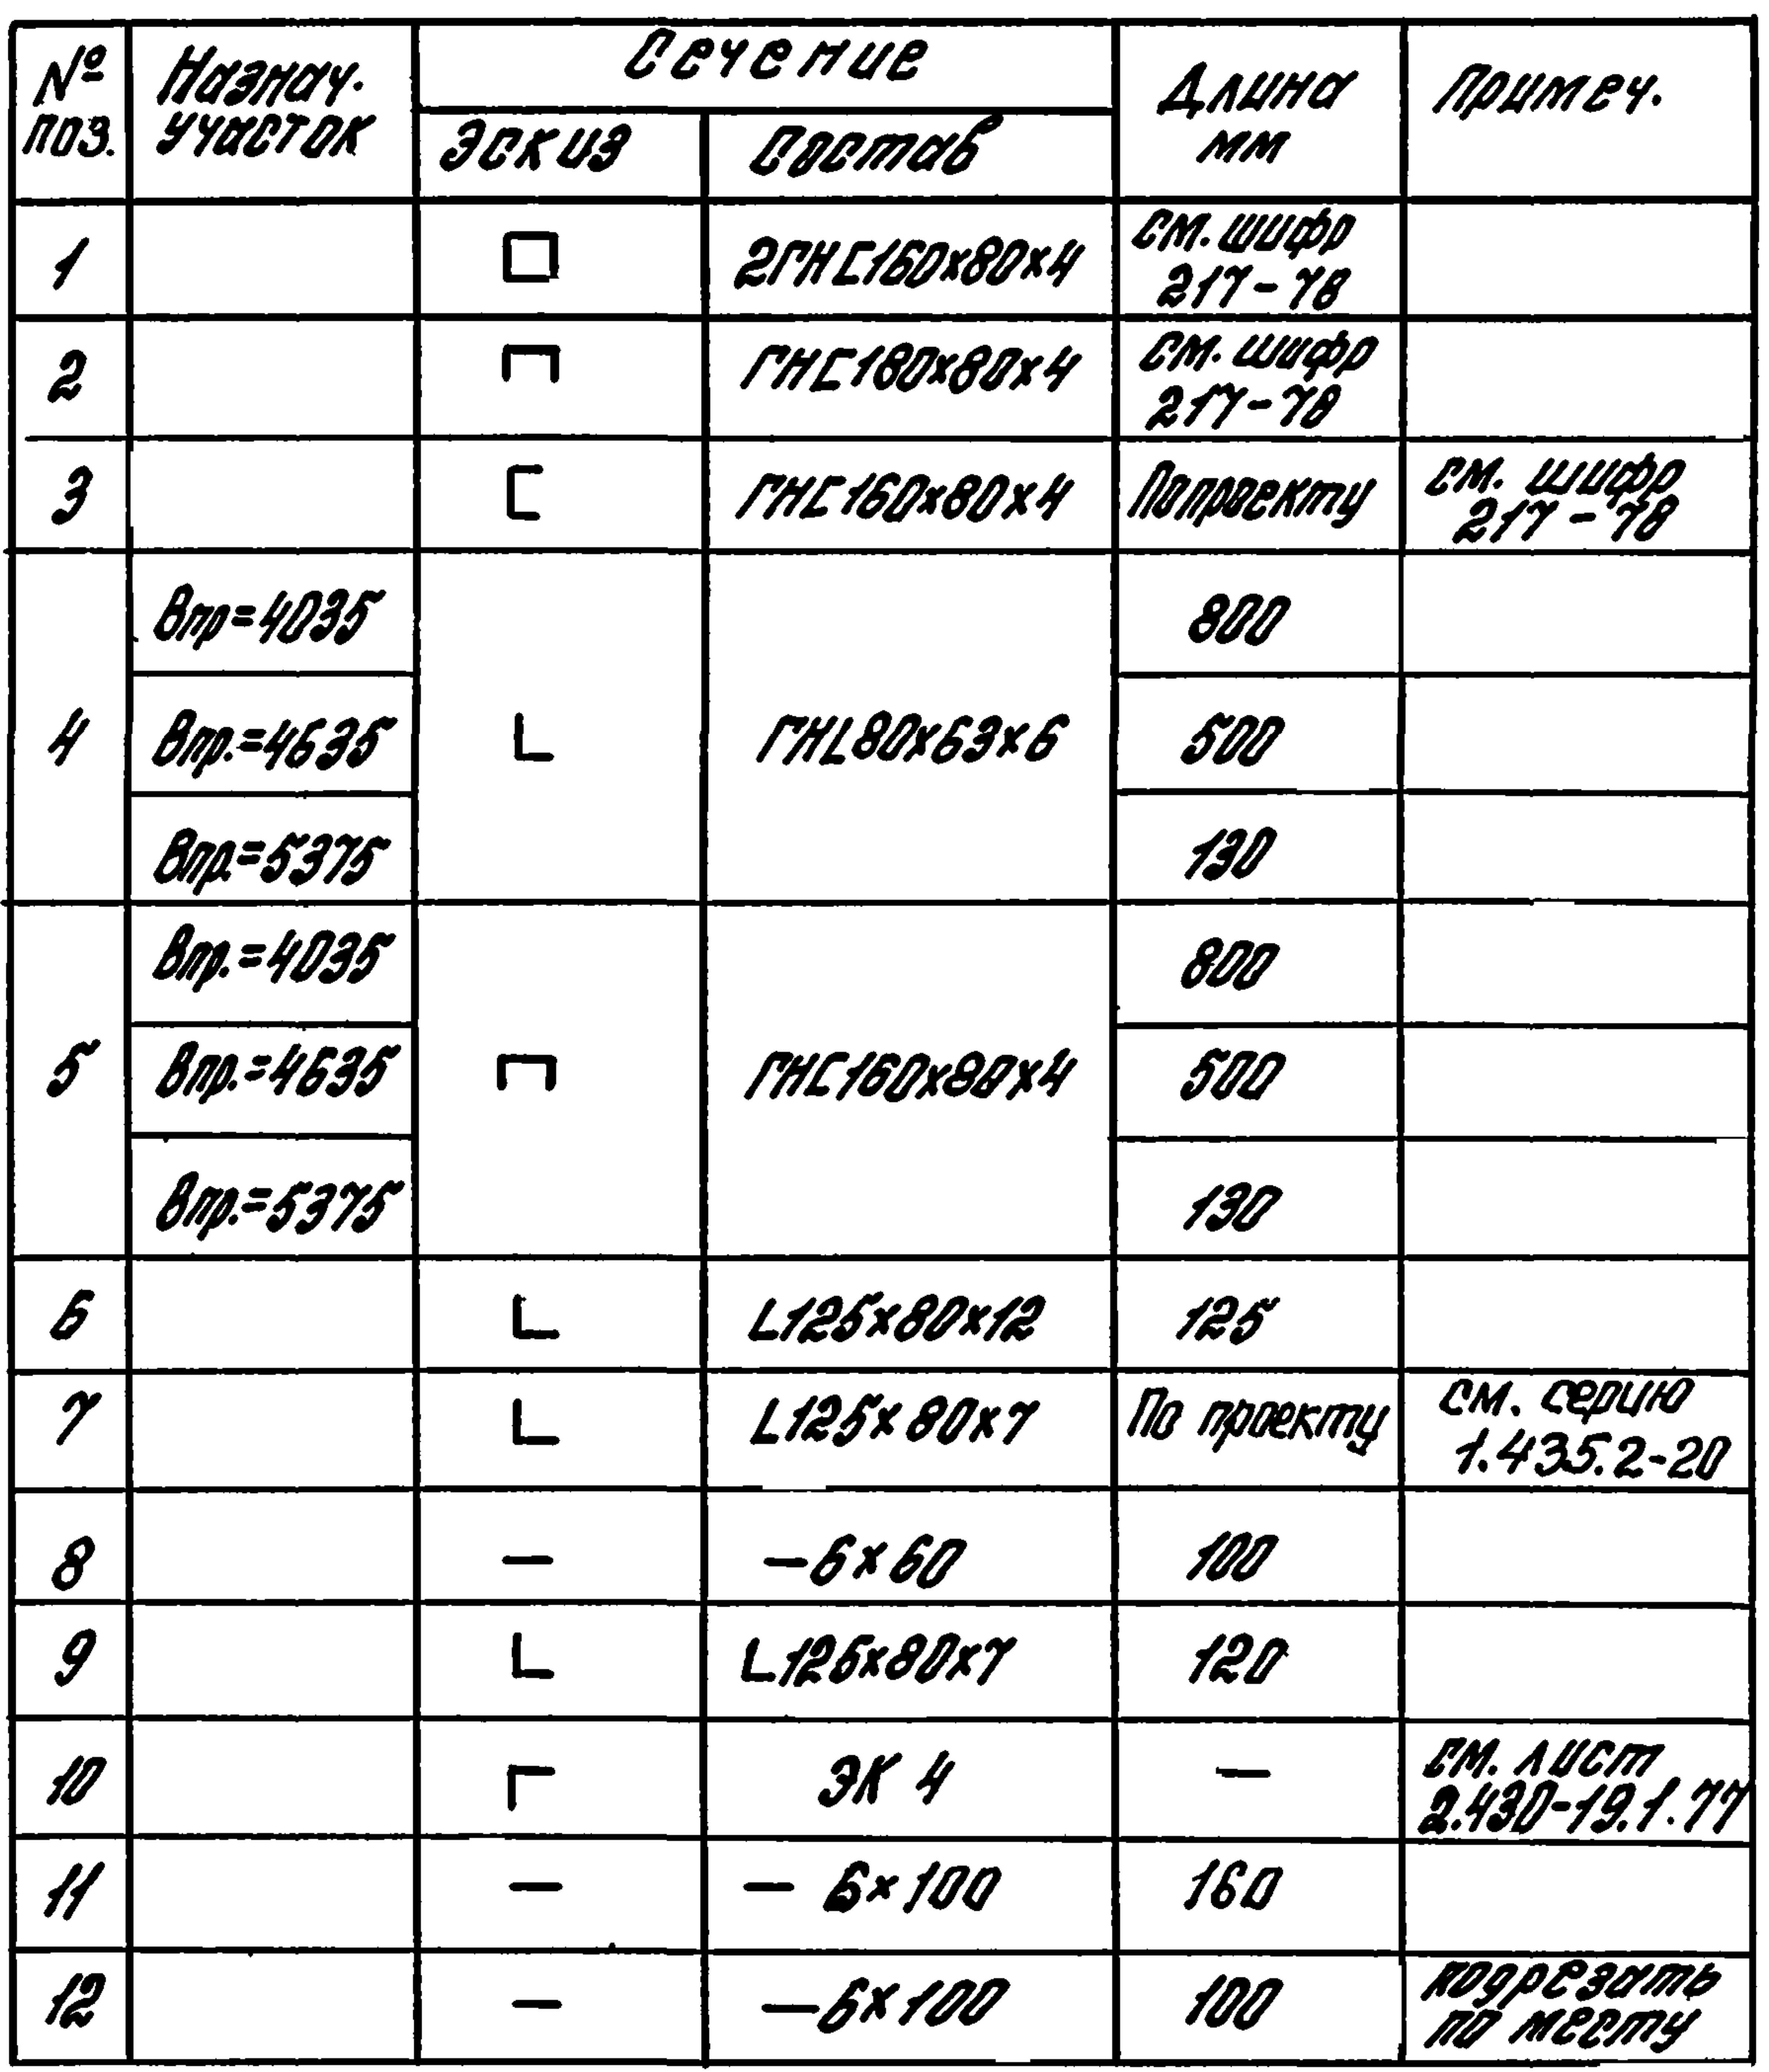 № поз. Назнач. участок Сечение Длина мм Примеч.
Эскиз Состав
1 2ГНС160х80х4 см. шифр 217-78
2 ГНС180х80х4 см. шифр 217-78
3 ГНС160х80х4 По проекту см. шифр 217-78
4 Впр=4035 ГНL80х63х6 800
Впр.=4635 500
Впр.=5375 130
5 Впр.=4035 ГНС160х80х4 800
Впр.=4635 500
Впр.=5375 130
6 L125х80х12 125
7 L125х80х7 По проекту см. серию 1.435.2-20
8 – –6х60 100
9 L125х80х7 120
10 ЭК 4 – см. лист 2.430-19.1.77
11 – – 6х100 160
12 – –6х100 100 подрезать по месту